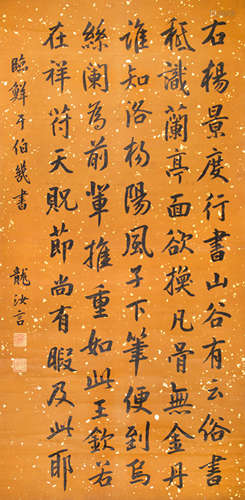 右楊景度行書山谷有云俗書
秪識蘭亭面欲換凡骨無金丹
誰知洛楊陽風子下筆便到烏
絲闌為前輩推重如此王欽若
在祥符天貺節尚有暇及此耶
臨鮮于伯幾書 龍汝言